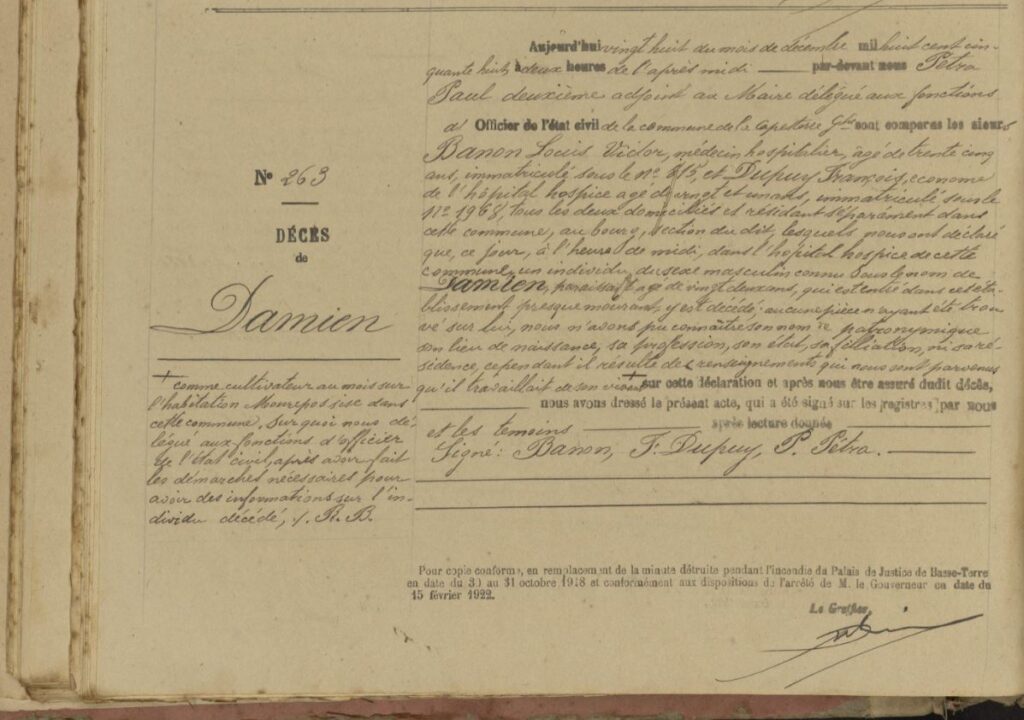 Nº 263
DÉCÈS
de
Damien
+ comme cultivateur au mois sur
l'habitation Monrepos sise dans
cette commune. Sur quoi nous dé-
légué aux fonctions d'officier
de l'état civil, après avoir fait
les démarches nécessaires pour
avoir des informations sur l'in-
dividu décédé, ./. R. B.
Aujourd'hui vingt huit du mois de décembre mil huit cent cin-
quante huit, à deux heures de l'après midi — par-devant nous Pétra
Paul deuxième adjoint au Maire délégué aux fonctions
d' Officier de l'état civil de la commune de la Capesterre Gde sont comparus les sieurs
Banon Louis Victor, médecin hospitalier, âgé de trente cinq
ans, immatriculé sous le nº 615, et Dupuy François, économe
de l'hôpital hospice agé de vingt et un ans, immatriculé sous le
nº 1968, tous les deux domiciliés et résidant séparément dans
cette commune, au bourg, section du dit, lesquels nous ont déclaré
que, ce jour, à l'heure de midi, dans l'hôpital hospice de cette
commune, un individu du sexe masculin connu sous le nom de
Damien, paraissant agé de vingt deux ans, qui est entré dans cet éta-
blissement presque mourant, y est décédé; aucune pièce n'ayant été trou-
vé sur lui, nous n'avons pu connaître son nom patronymique
son lieu de naissance, sa profession, son état, sa filiation, ni sa ré-
sidence, cependant il résulte des renseignements qui nous sont parvenus
qu'il travaillait de son vivant + sur cette déclaration et après nous être assuré dudit décès,
nous avons dressé le présent acte, qui a été signé sur les registres par nous
après lecture donnée
et les temoins
Signé: Banon, F. Dupuy, P. Pétra.
Pour copie conforme, en remplacement de la minute détruite pendant l'incendie du Palais de Justice de Basse-Terre
en date du 30 au 31 octobre 1918 et conformément aux dispositions de l'arrêté de M. le Gouverneur en date du
15 février 1922.
Le Greffier,